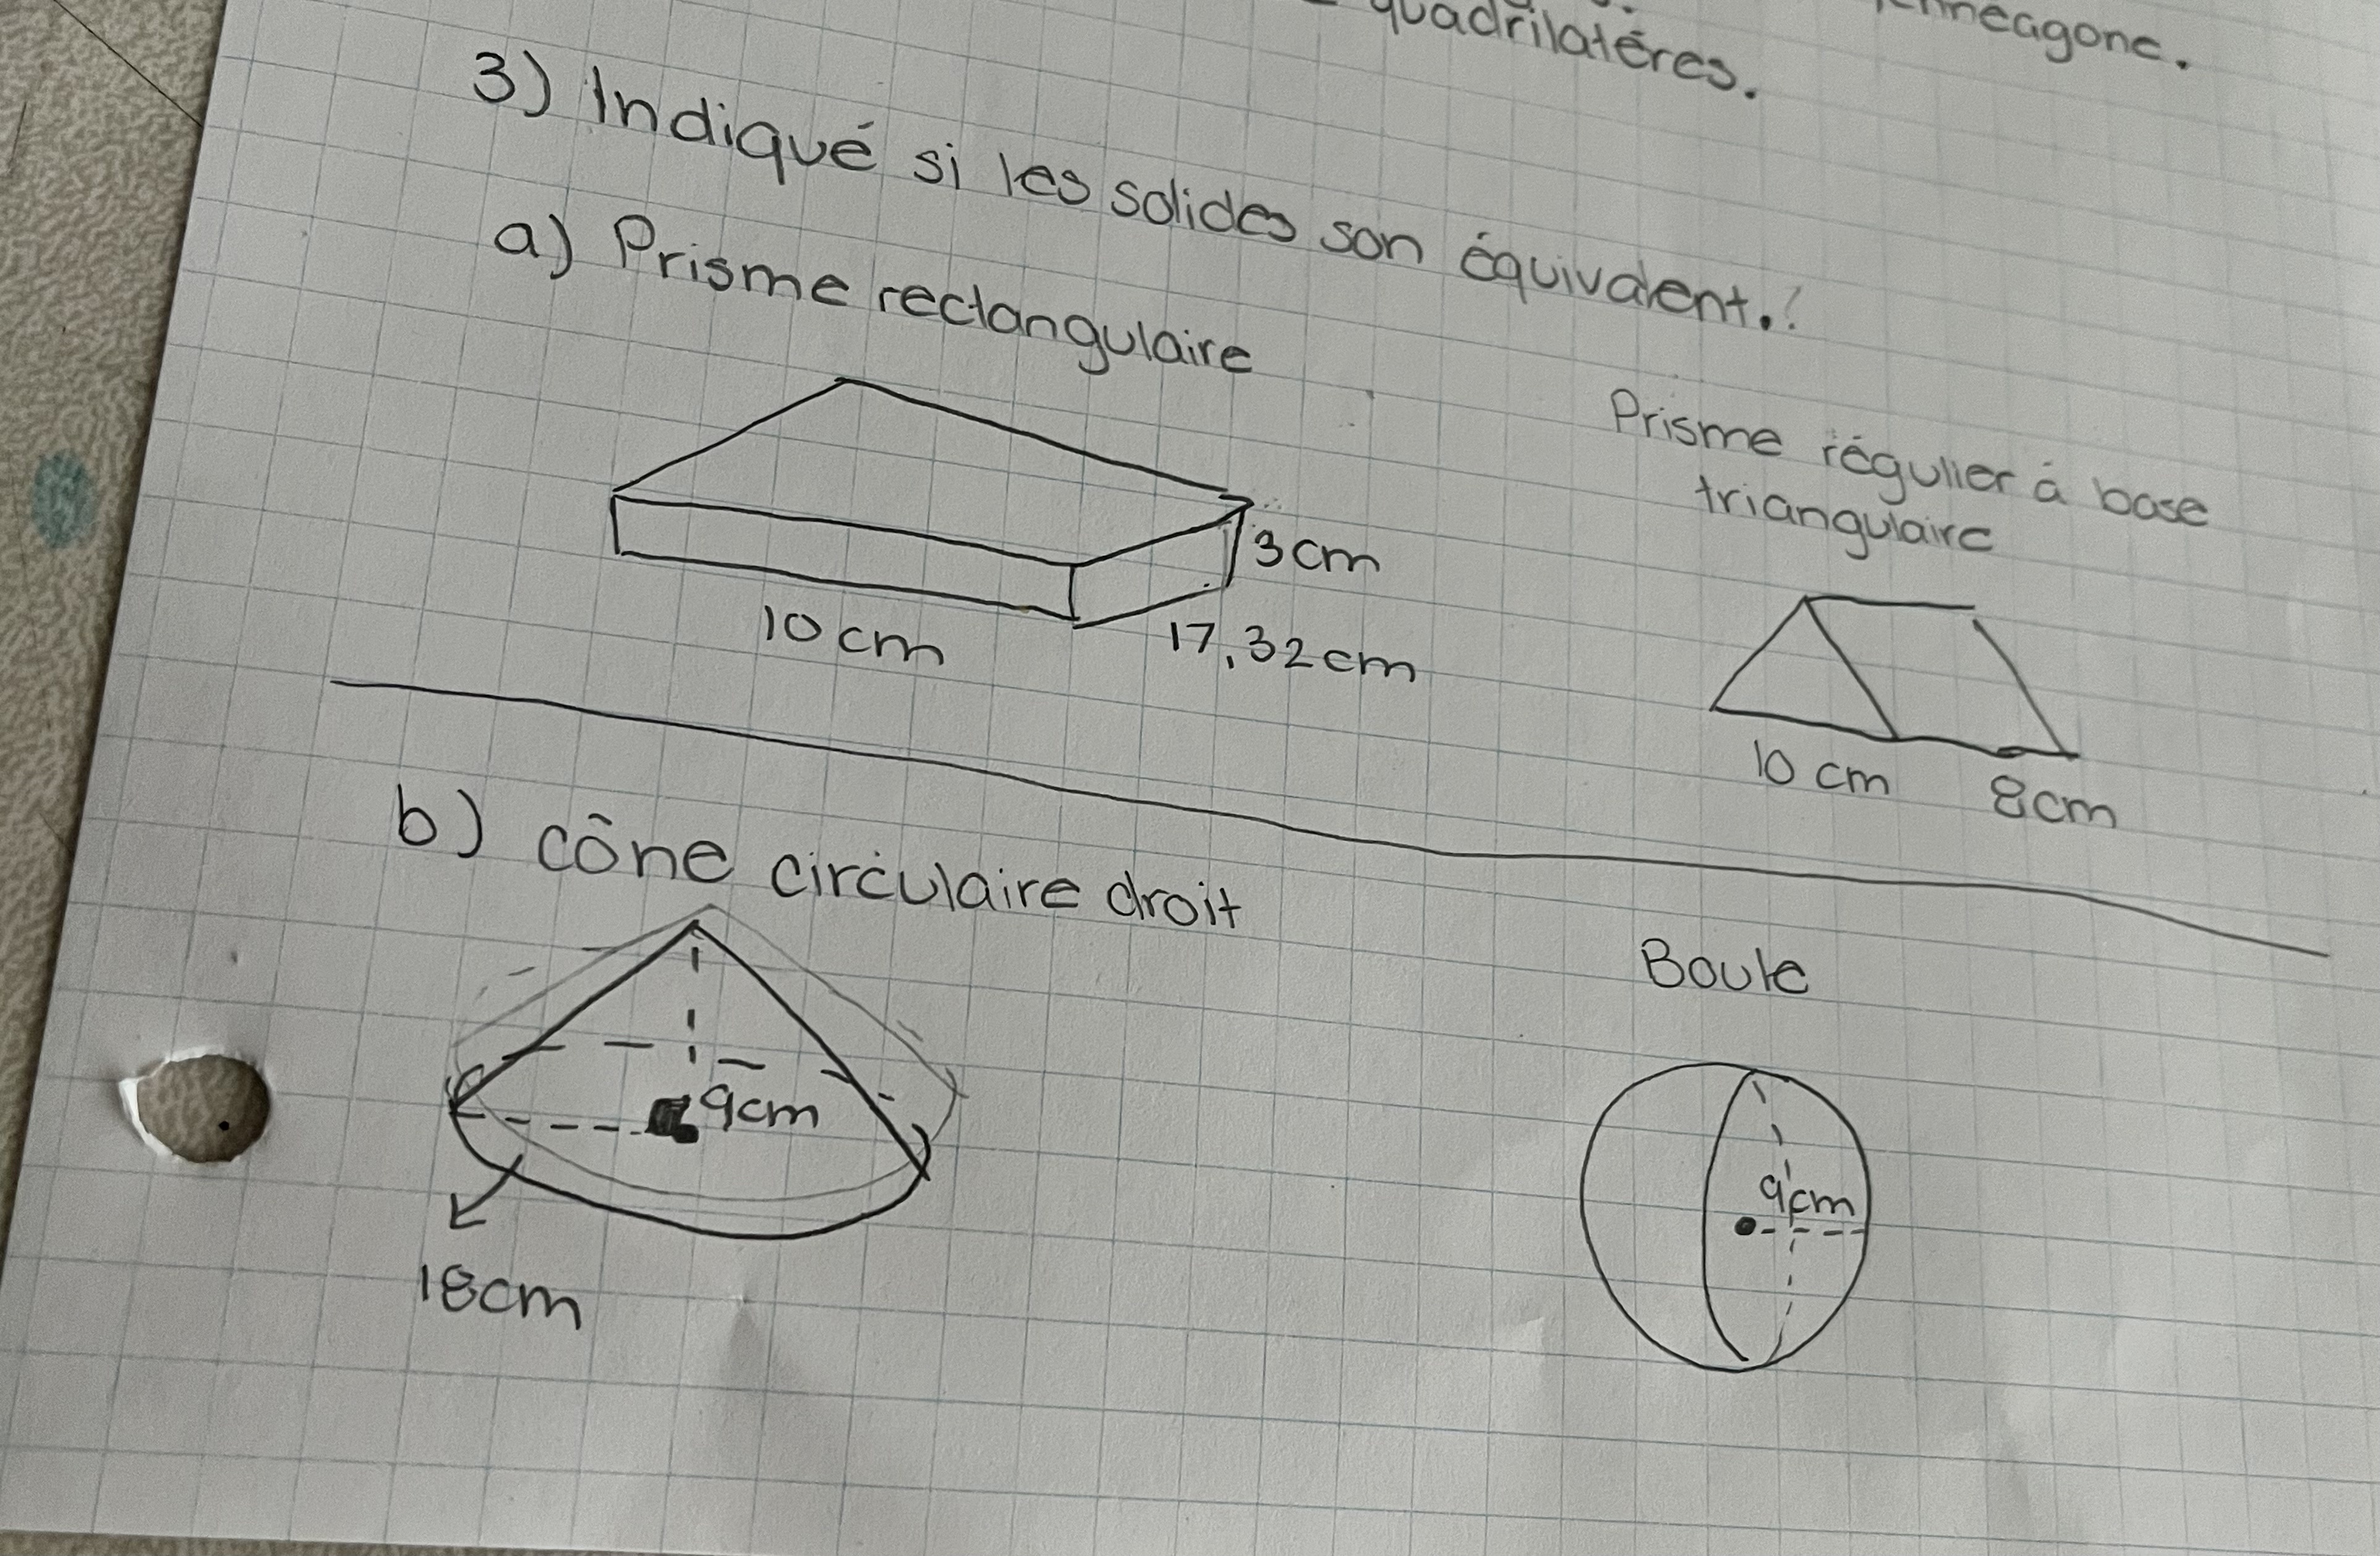 quadrilatéres.
3) Indiqué si les solides son équivalent.!
a) Prisme rectangulaire
3cm
10cm
17,32cm
Prisme régulier à base
triangulaire
10 cm
8cm
b) cône circulaire droit
9cm
18cm
Boule
9cm